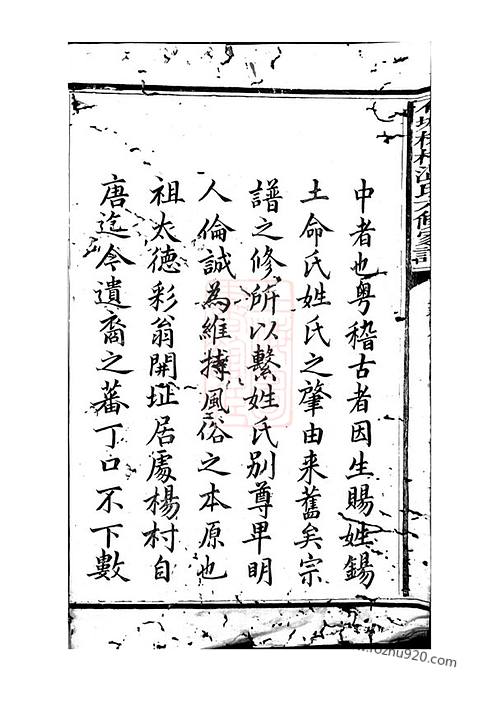 中者也粤稽古者因生賜姓錫
土命氏姓氏之肇由来舊矣宗
譜之修所以繫姓氏别尊卑明
人倫誠為維摶風俗之本原也
祖太德彩翁開址居處楊村自
唐迄今遺裔之蕃丁口不下數
楊村
氏
修家譜
zhu920.com